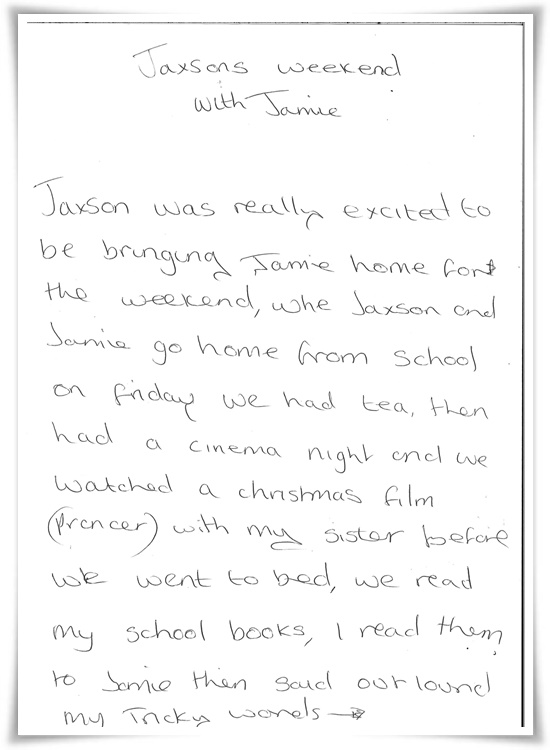 Jaxsons weekend
with Jamie
Jaxson was really excited to
be bringing Jamie home for
the weekend, whe Jaxson and
Jamie go home from school
on friday we had tea, then
had a cinema night and we
watched a christmas film
(Prancer) with my sister before
we went to bed, we read
my school books, I read them
to Jamie then said out lound
my Tricky words →